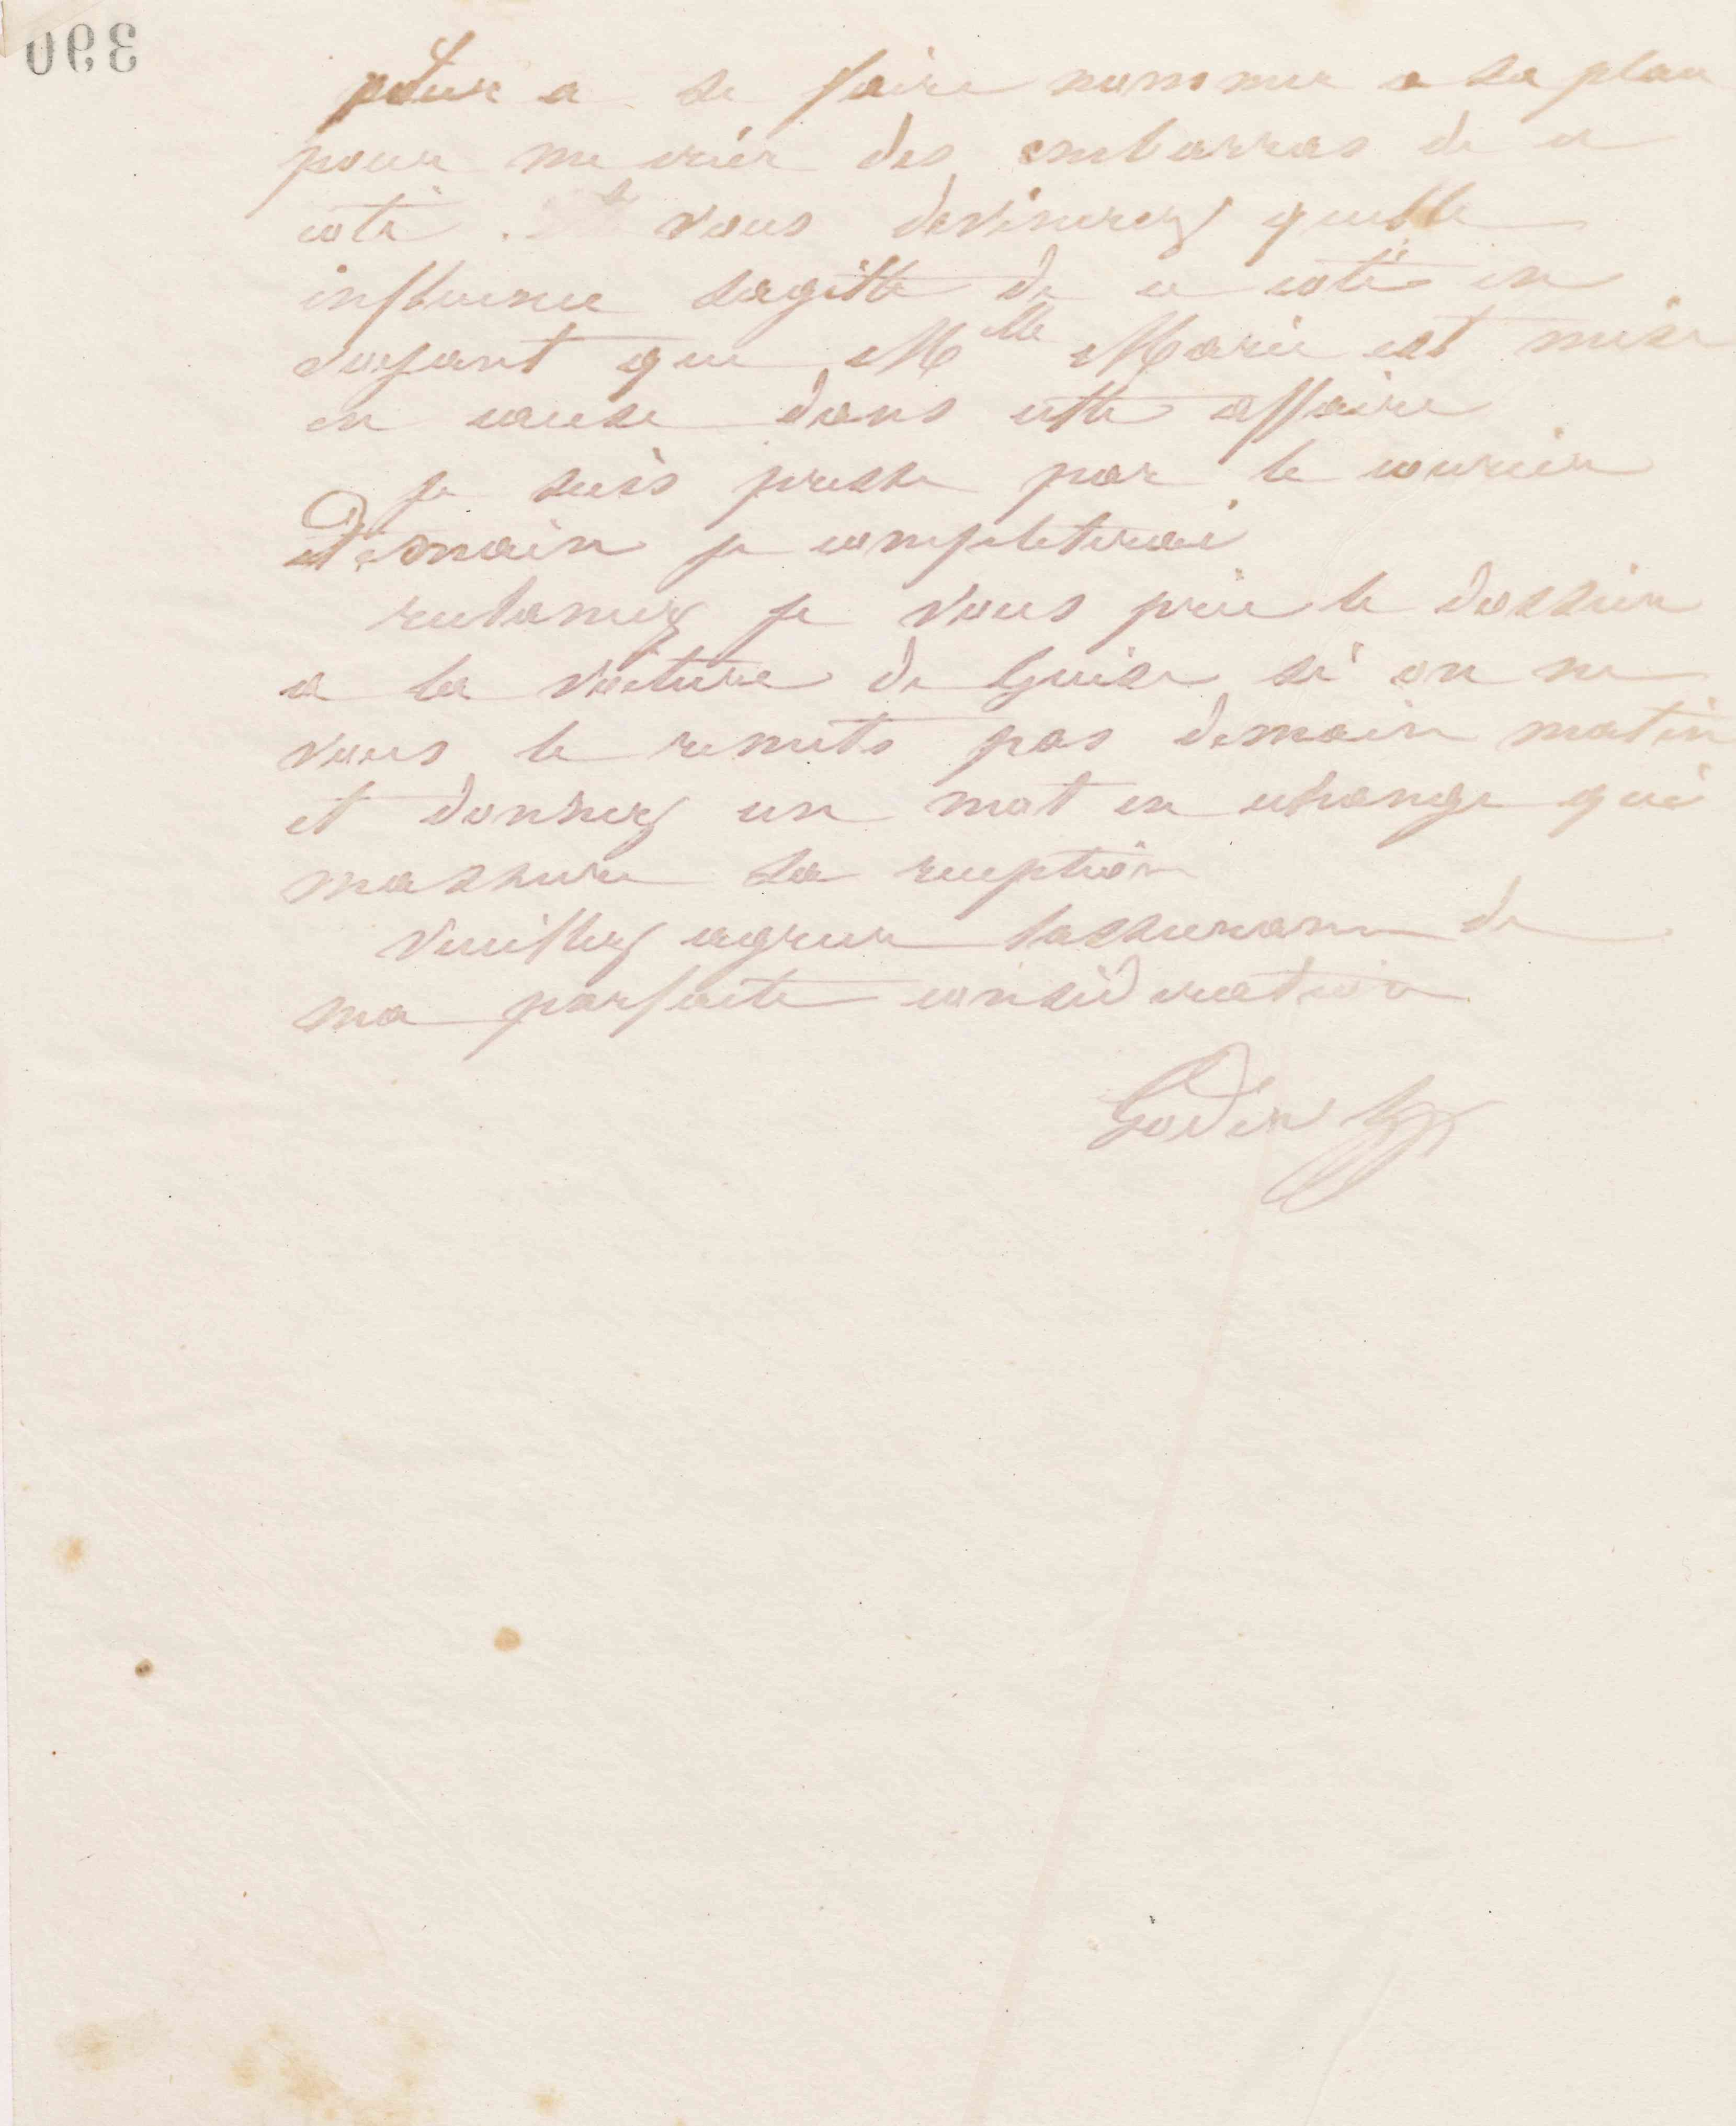 390
a se faire nommer a sa place
pour me créer des embarras de ce
coté. vous devinerez quelle
influence sagitte de ce coté en
voyant que Mlle Marie est mise
en cause dans cette affaire
je suis presse par le courier
demain je completerai
reclamez je vous prie le dossier
a la voiture de Guise si on ne
vous le remets pas demain matin
et donnez un mot en echange qui
massure sa reception
Veuillez agreer lassurance de
ma parfaite consideration
Godin